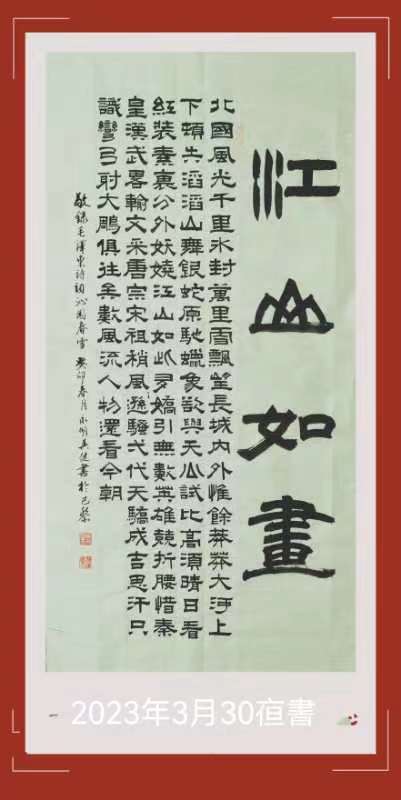 江山如畫
北國風光千里冰封萬里雪飄望長城内外惟餘莽莽大河上
下頓失滔滔山舞銀蛇原馳蠟象欲與天公試比高須晴日看
紅裝素裹分外妖嬈江山如此多嬌引無數英雄競折腰惜秦
皇漢武畧輸文采唐宗宋祖稍風遜騷弌代天驕成吉思汗只
識彎弓射大鵰俱往矣數風流人物還看今朝
敬錄毛澤東詩詞沁園春雪 癸卯春月 書於巴黎
2023年3月30亱書